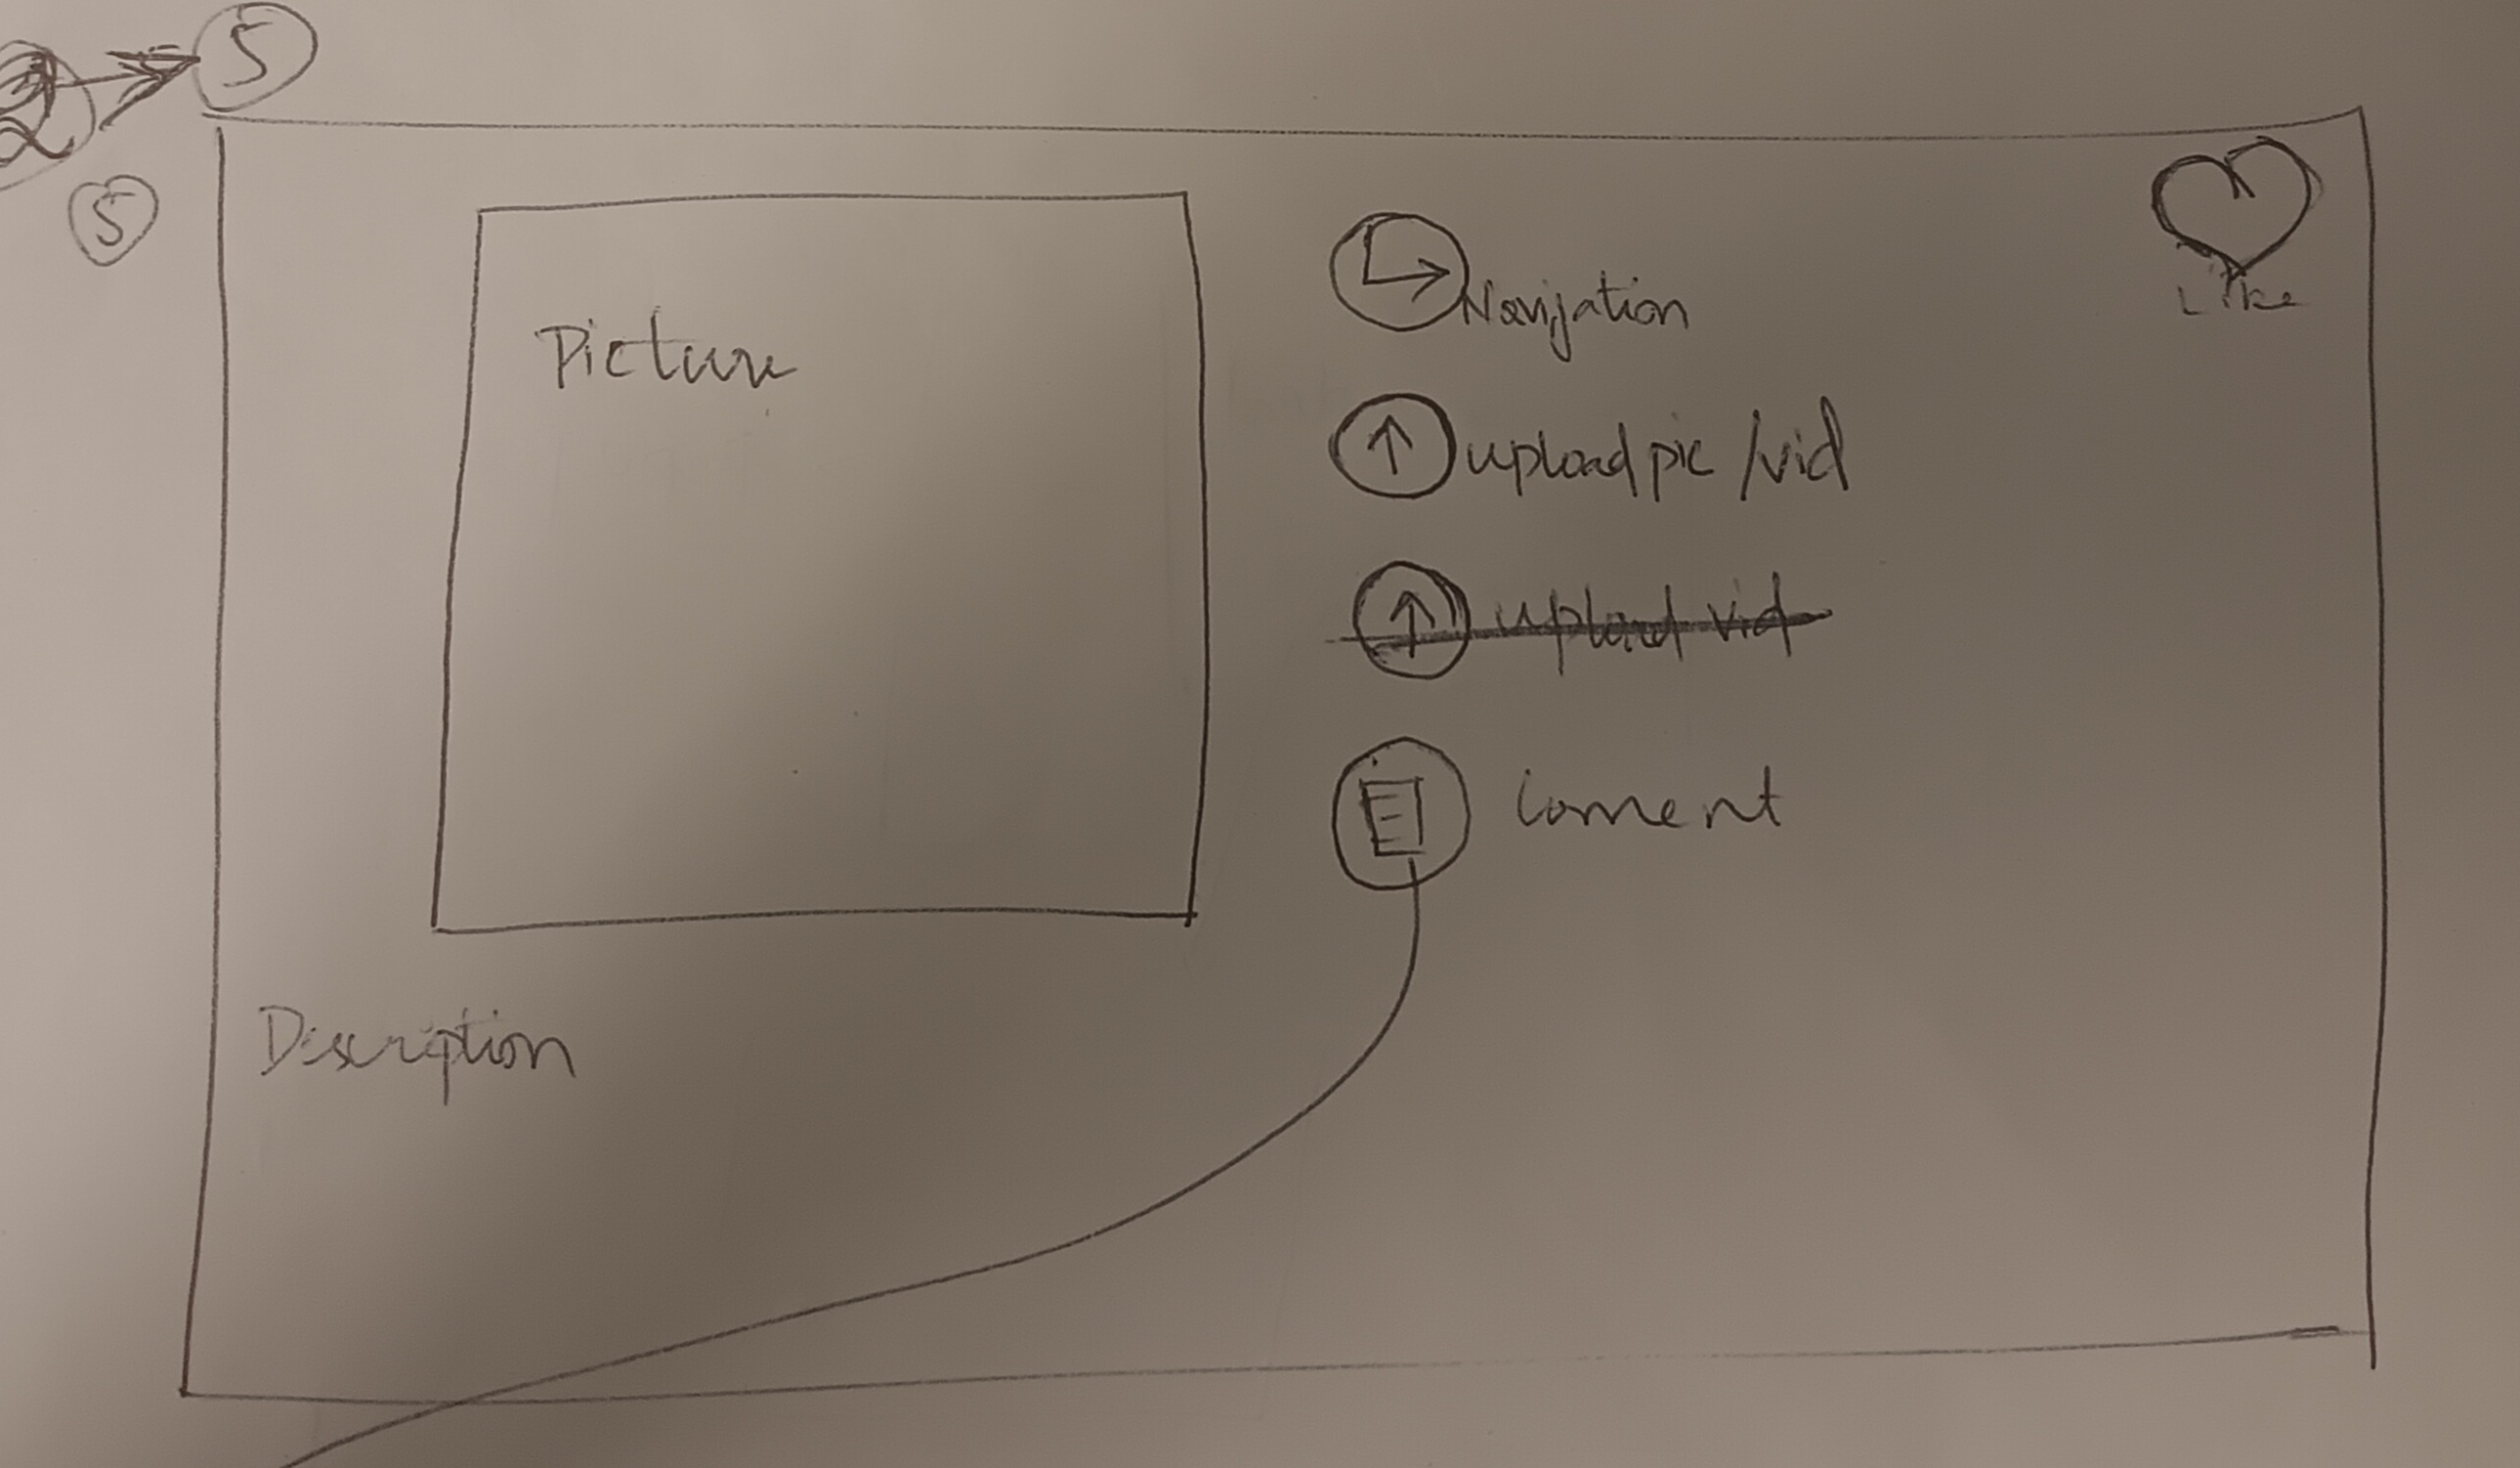 5
5
Picture
Navigation
Like
upload pic /vid
upload vid
Coment
Description